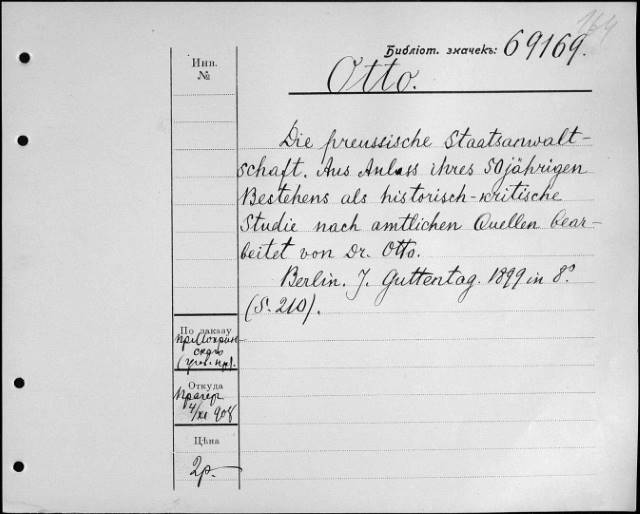 164
Библіот. значекъ: 69169.
Otto.
Инв.
№
Die preussische Staatsanwalt-
schaft. Aus Anlass ihres 50jährigen
Bestehens als historisch-kritische
Studie nach amtlichen Quellen bear-
beitet von Dr. Otto.
Berlin. J. Guttentag. 1899 in 8°
(S. 210).
По заказу
Откуда
Прагер
4/XI 908
Цѣна
2р.